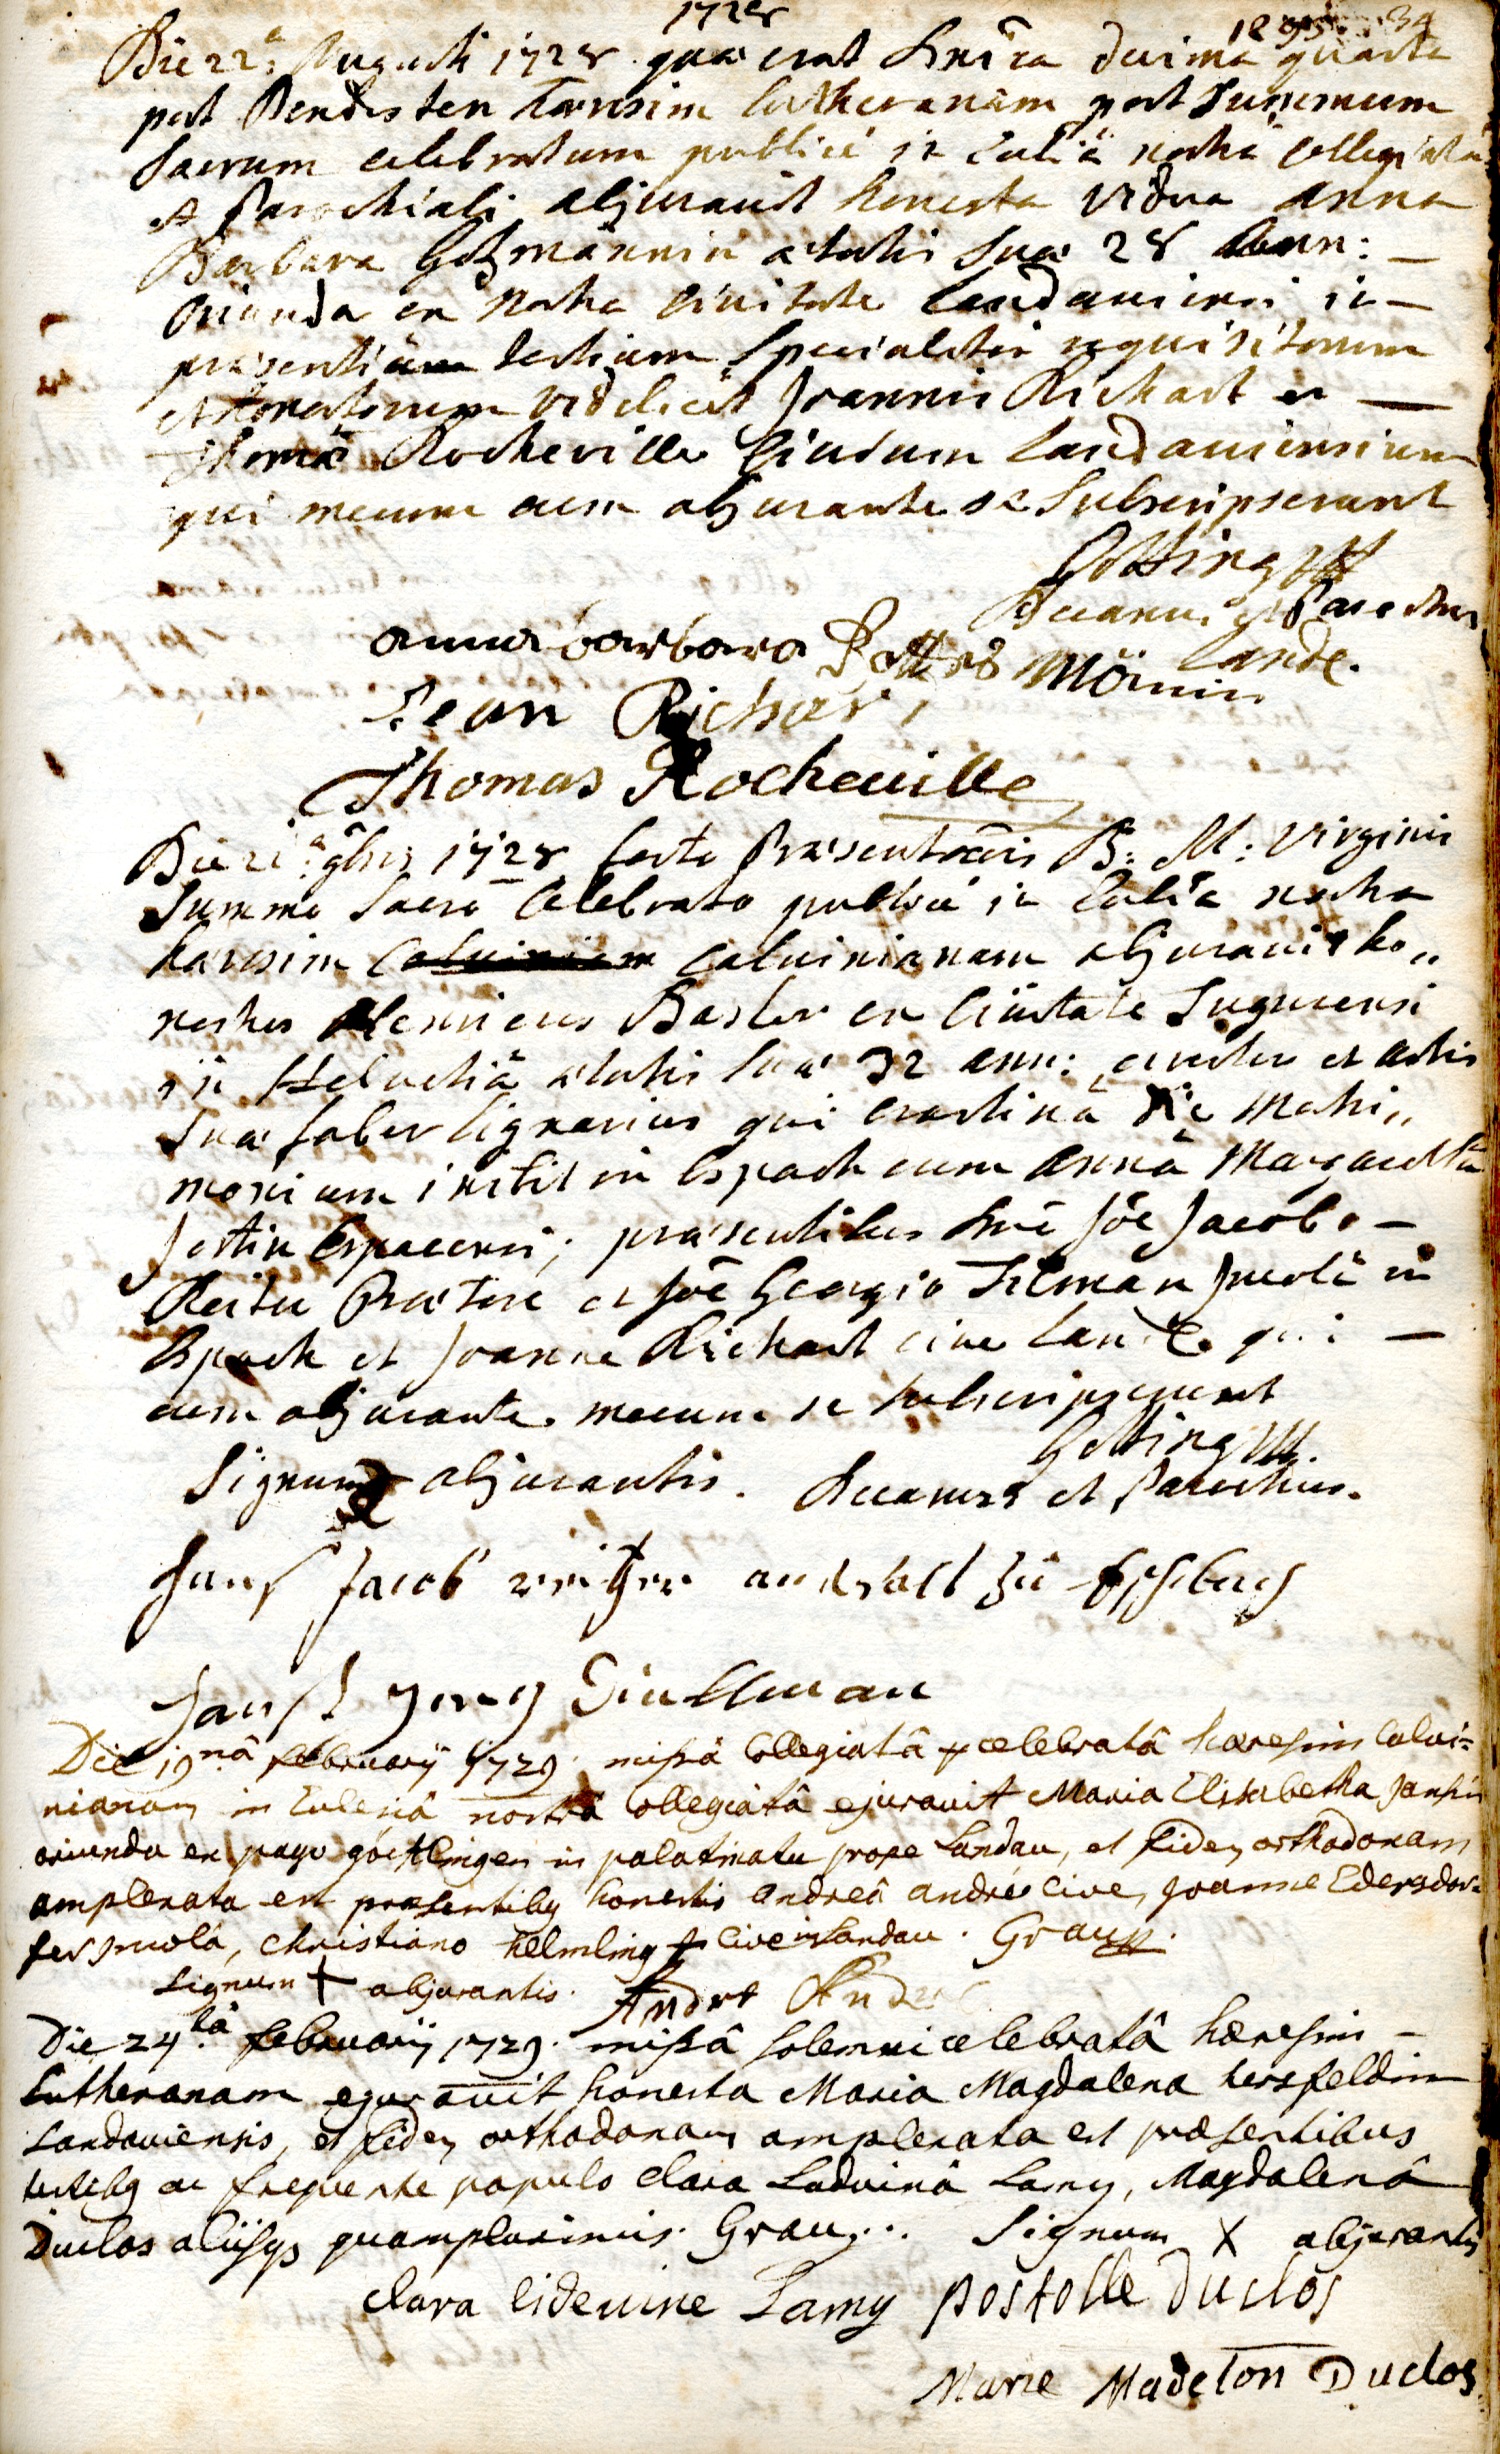 1728
34
Die 22ᵃ Augusti 1728 quae erat Dnica decima quarta
post Pentecosten haeresim Lutheranam post Summum
Sacrum celebratum publicè in Eccliâ nostrâ Collegiatâ
et Parochiali abjuravit honesta vidua Anna
Barbara aetatis suae 28 ann: —
Oriunda ex nostra Civitate Landaviensi in —
praesentiam testium specialiter requisitorum
et rogatorum videlicet Joannis Richart et —
Thomae Rocheville Civium Landaviensium
qui mecum cum abjurante se subscripserunt
Gotting
Decanus et Parochus
Landa.
anna barbara
Jean Richar
Thomas Rocheuille
Die 21ᵃ 9bris 1728 festo Praesentaois B: M: Virginis
Summo Sacro Celebrato publicè in Ecclia nostra
haeresim Calvinianam abjuravit ho„
nestus Henricus Basler ex Civitate Tugurensi
in Helvetiâ aetatis suae 32 ann: et artis
suae faber lignarius qui crastinâ die Matri„
monium iniit in Espach cum Annâ Margaretha
Jostin Espacensi; praesentibus Joe Jacobo —
Reiter Praetore et Joe Georgio Tilman Incolâ in
Espach et Joanne Richart cive Landa. qui —
cum abjurante mecum se subscripserunt
Gotting
Signum abjurantis. Decanus et Parochus.
Hans Jacob reitter anwalt zu Eschbach
Hans Jerg Dillman
Die 19.nâ februarij 1729. missâ Collegiatâ celebratâ haeresim Calvi=
nianam in Eclesiâ nostrâ Collegiatâ ejuravit Maria Elisabetha
oriunda ex pago göcklingen in palatinatu prope Landau, et fidem orthodoxam
amplexata est praesentibus honestis Andreâ andré cive, Joanne Edersdor=
fer incolâ, Christiano Helmling cive in Landau. Grau
Signum + abjurantis. André André
Die 24.tâ februarij 1729. missâ solemni celebratâ haeresim —
Lutheranam ejuravit honesta Maria Magdalena hersfeldin
Landaviensis, et fidem orthodoxam amplexata est praesentibus
testibus ac frequente populo Clara Ludvinâ Lamy, Magdalenâ
Duclos aliisqs quamplurimis. Grau... Signum X abjurantis
Clara lidevine Lamy postolle Duclos
Marie Madelon Duclos